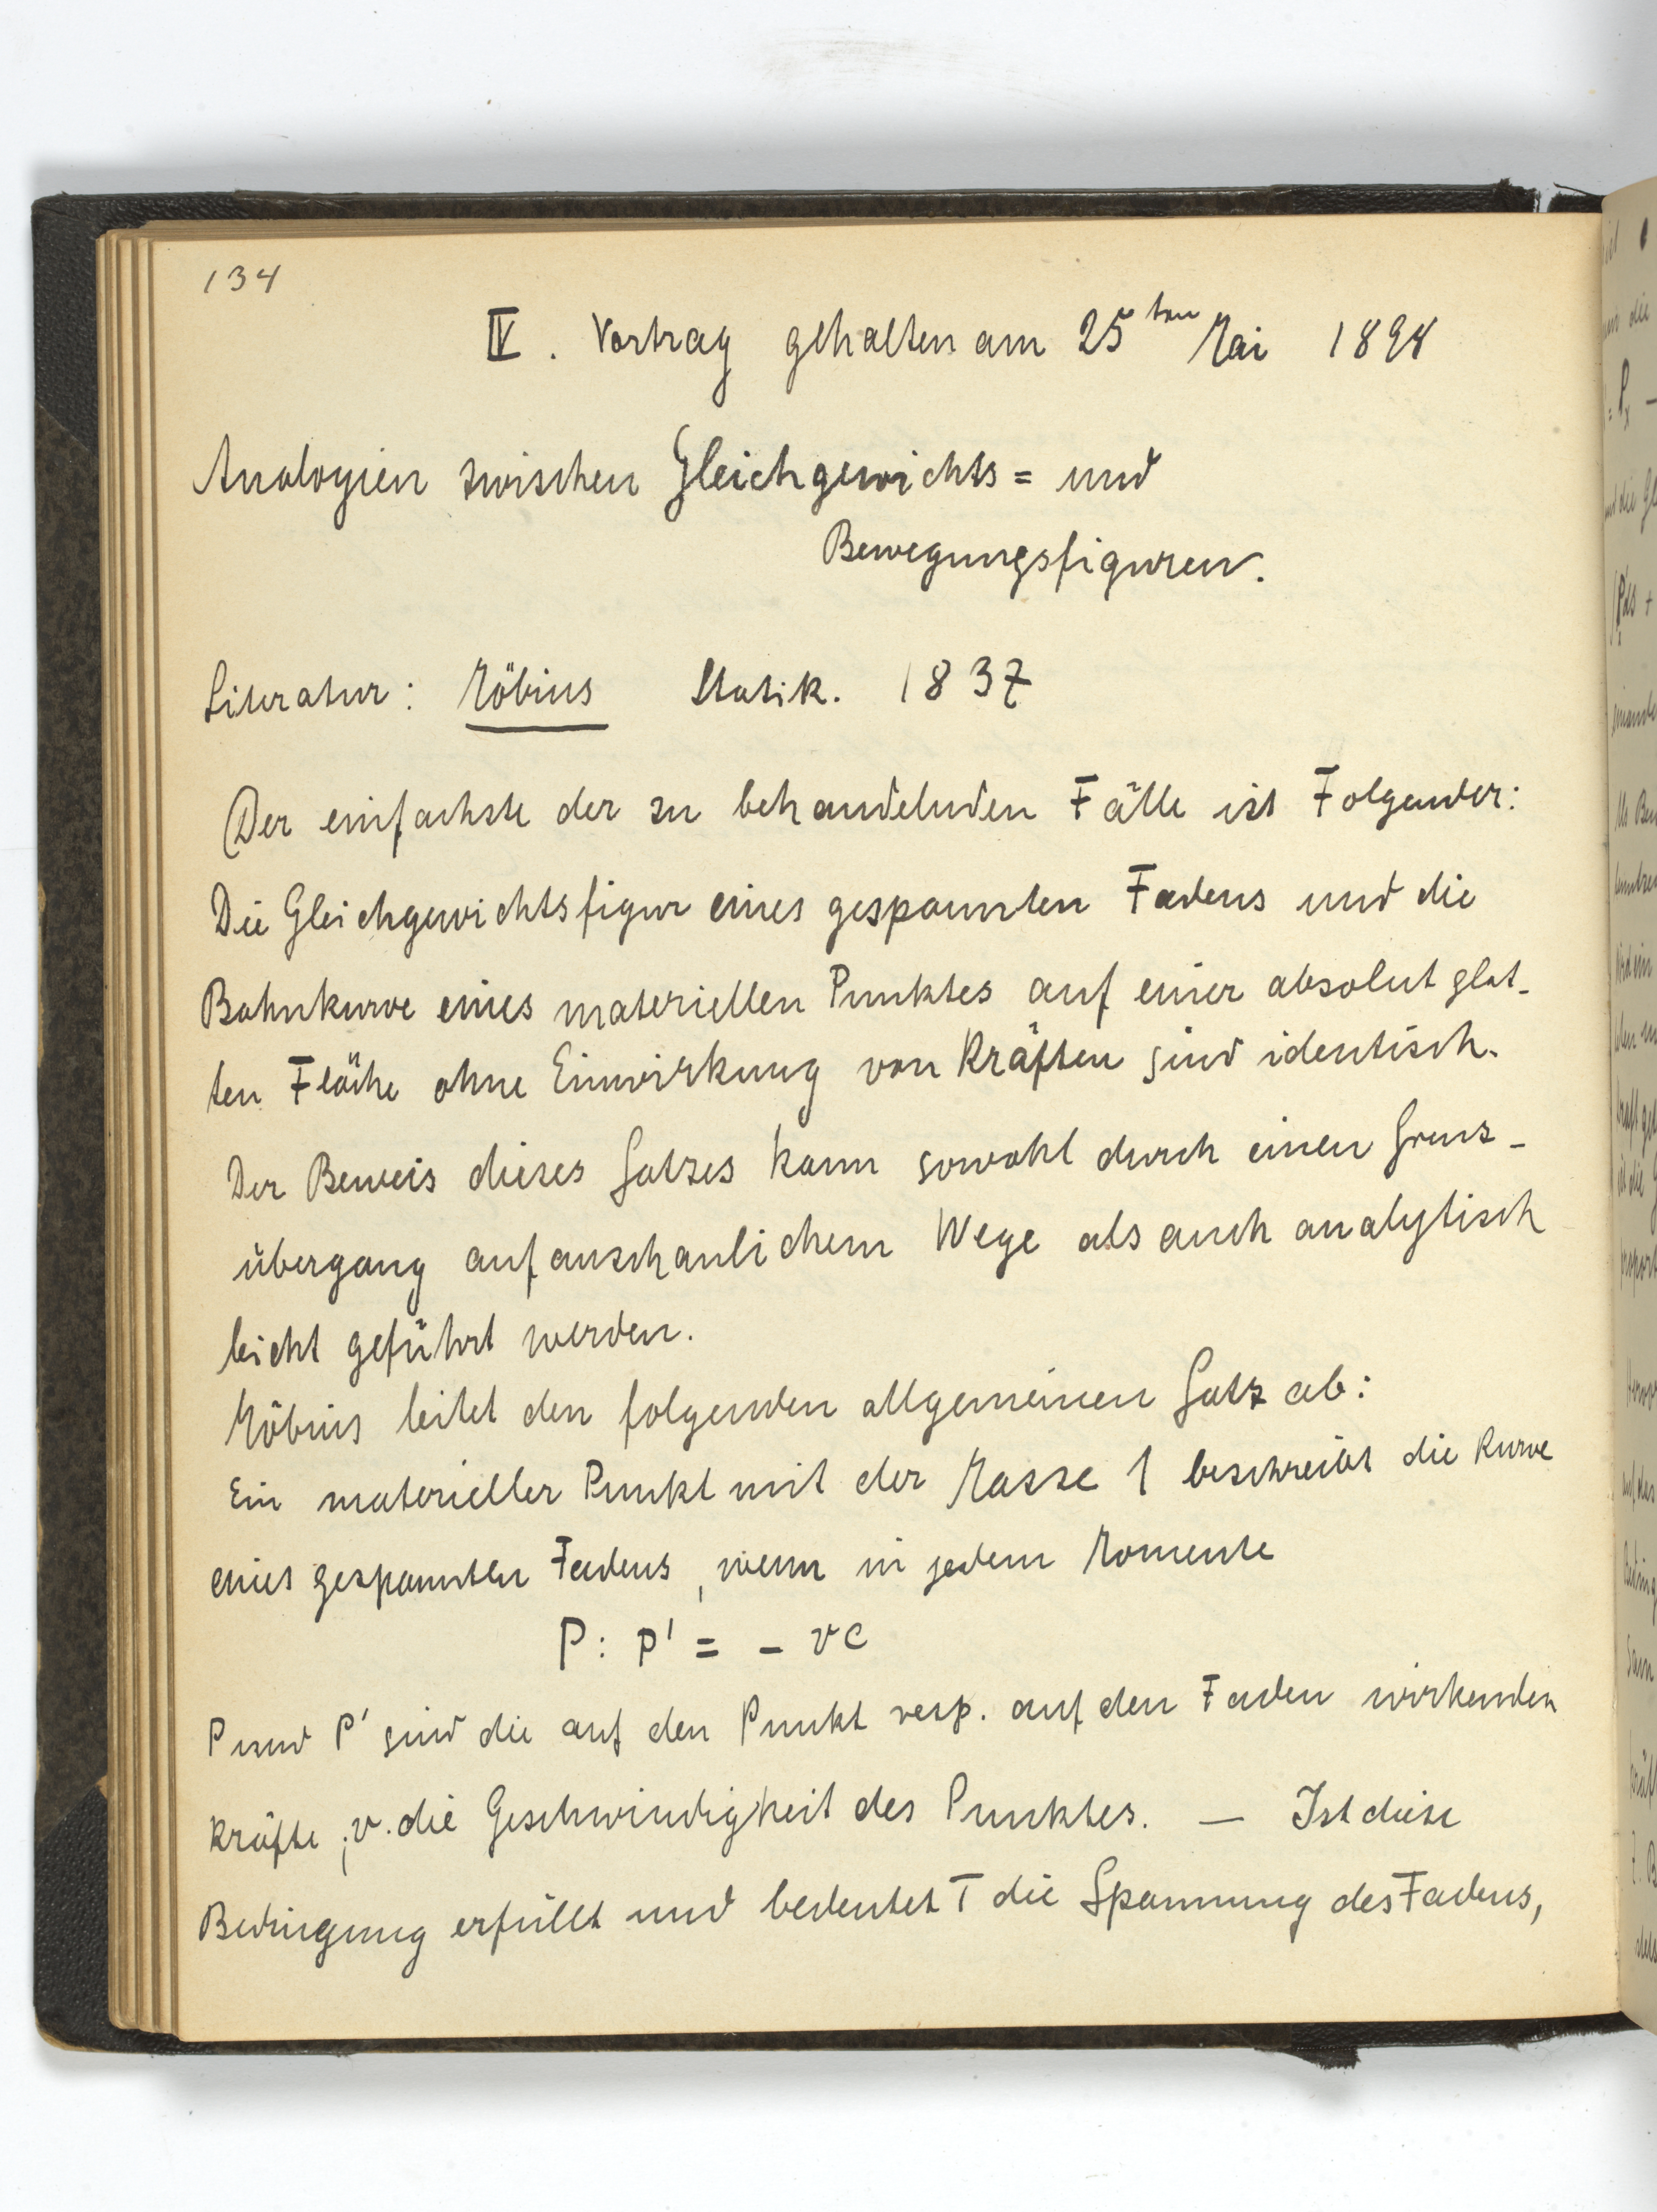 134
IV. Vortrag gehalten am 25ten Mai 1898
Analogien zwischen Gleichgewichts= und
Bewegungsfiguren.
Literatur: Möbius Statik. 1837
Der einfachste der zu behandelnden Fälle ist Folgender:
Die Gleichgewichtsfigur eines gespannten Fadens und die
Bahnkurve eines materiellen Punktes auf einer absolut glat-
ten Fläche ohne Einwirkung von Kräften sind identisch.
Der Beweis dieses Satzes kann sowohl durch einen Grenz-
übergang auf anschaulichem Wege als auch analytisch
leicht geführt werden.
Möbius leitet den folgenden allgemeinen Satz ab:
Ein materieller Punkt mit der Masse 1 beschreibt die Kurve
eines gespannten Fadens, wenn in jedem Momente
P : P' = - vc
P und P' sind die auf den Punkt resp. auf den Faden wirkenden
Kräfte; v. die Geschwindigkeit des Punktes. — Ist diese
Bedingung erfüllt und bedeutet T die Spannung des Fadens,